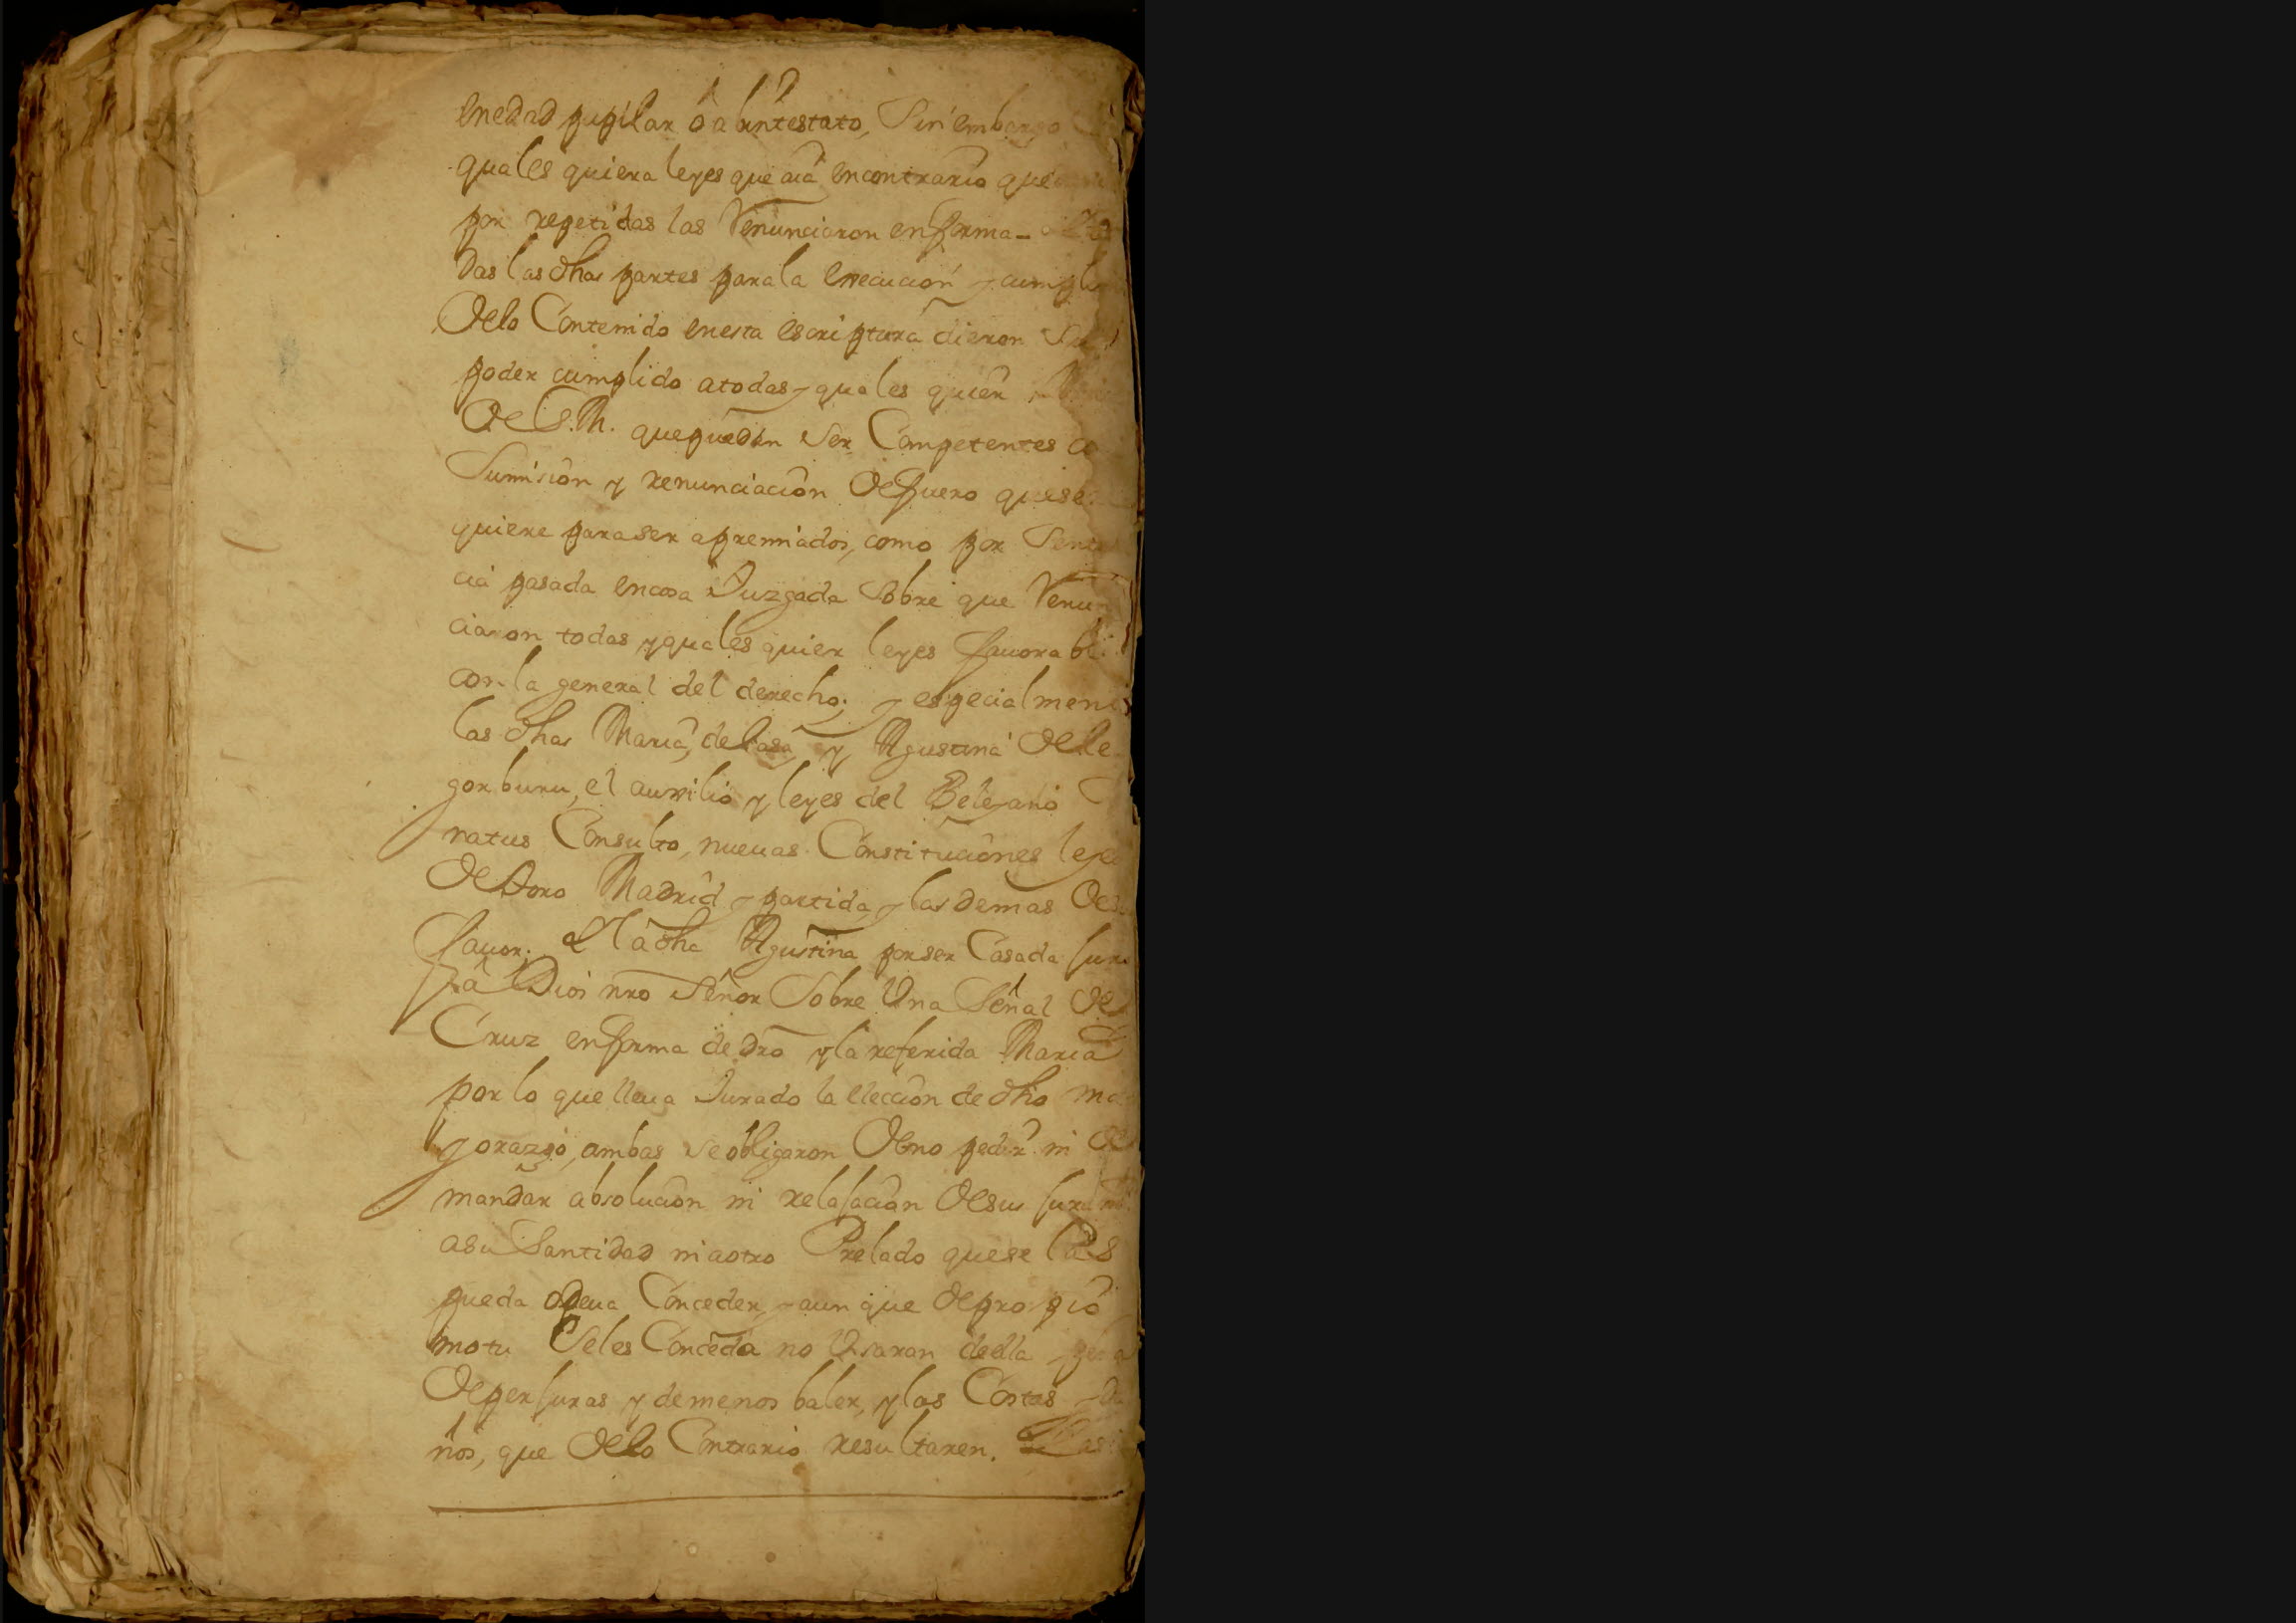 enedad pupilar ó abintestato, Sin embargo
quales quiera leyes que aia encontrario que
por repetidas las Renunciaron enforma-
das las dhas partes parala execucion y cumpli
Delo Contenido enesta escriptura dieron
poder cumplido atodas y quales quier
De S.M. quepuedan Ser Competentes
Sumision y renunciacion Defuero quese
quiere paraser apremiados, como por Senten
cia pasada encosa Juzgada Sobre que Renun
ciaron todas y quales quier leyes fauorabl
con la general del derecho; y especialment
las dhas Maria, de Casa y Agustina De Le
gorburu, el auxilio y leyes del Beleyano
natus Consulto, nueuas Constituciones leyes
De Toro Madrid y partida y las demas De
fauor. Y la dha Agustina por ser Casada Juro
a Dios nro Señor Sobre Una Señal De
Cruz enforma de dro y la referida Maria
por lo que lleua Jurado la eleccion de dho ma
yorazgo, ambas se obligaron De no pedir ni de
mandar absolucion ni relaJacion De sus Juram
asu Santidad ni aotro Prelado quese las
pueda o deua Conceder, y aun que De propio
motu Seles Conceda no Usaran della pena
De perJuras y de menos baler, y las Costas y da
ños, que De lo Contrario resultaren.